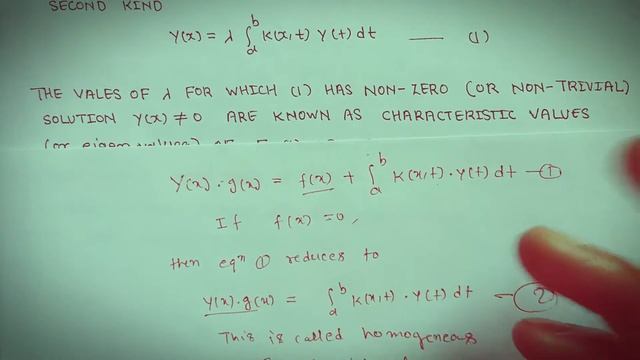 SECOND KIND
Y(x) = λ ∫_a^b K(x,t) Y(t) dt —— (1)
THE VALES OF λ FOR WHICH (1) HAS NON-ZERO (OR NON-TRIVIAL)
SOLUTION Y(x) ≠ 0 ARE KNOWN AS CHARACTERISTIC VALUES
Y(x)·g(x) = f(x) + ∫_a^b K(x,t)·Y(t) dt —①
If f(x) = 0,
then eqⁿ ① reduces to
Y(x)·g(x) = ∫_a^b K(x,t)·Y(t) dt —②
This is called homogeneous